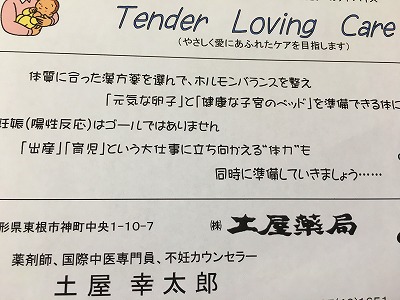 Tender Loving Care
(やさしく愛にあふれたケアを目指します)
体質に合った漢方薬を選んで、ホルモンバランスを整え
「元気な卵子」と「健康な子宮のベッド」を準備できる体に
妊娠(陽性反応)はゴールではありません
「出産」「育児」という大仕事に立ち向かえる“体力”も
同時に準備していきましょう……
形県東根市神町中央1-10-7
㈱ 土屋薬局
薬剤師、国際中医専門員、不妊カウンセラー
土屋 幸太郎